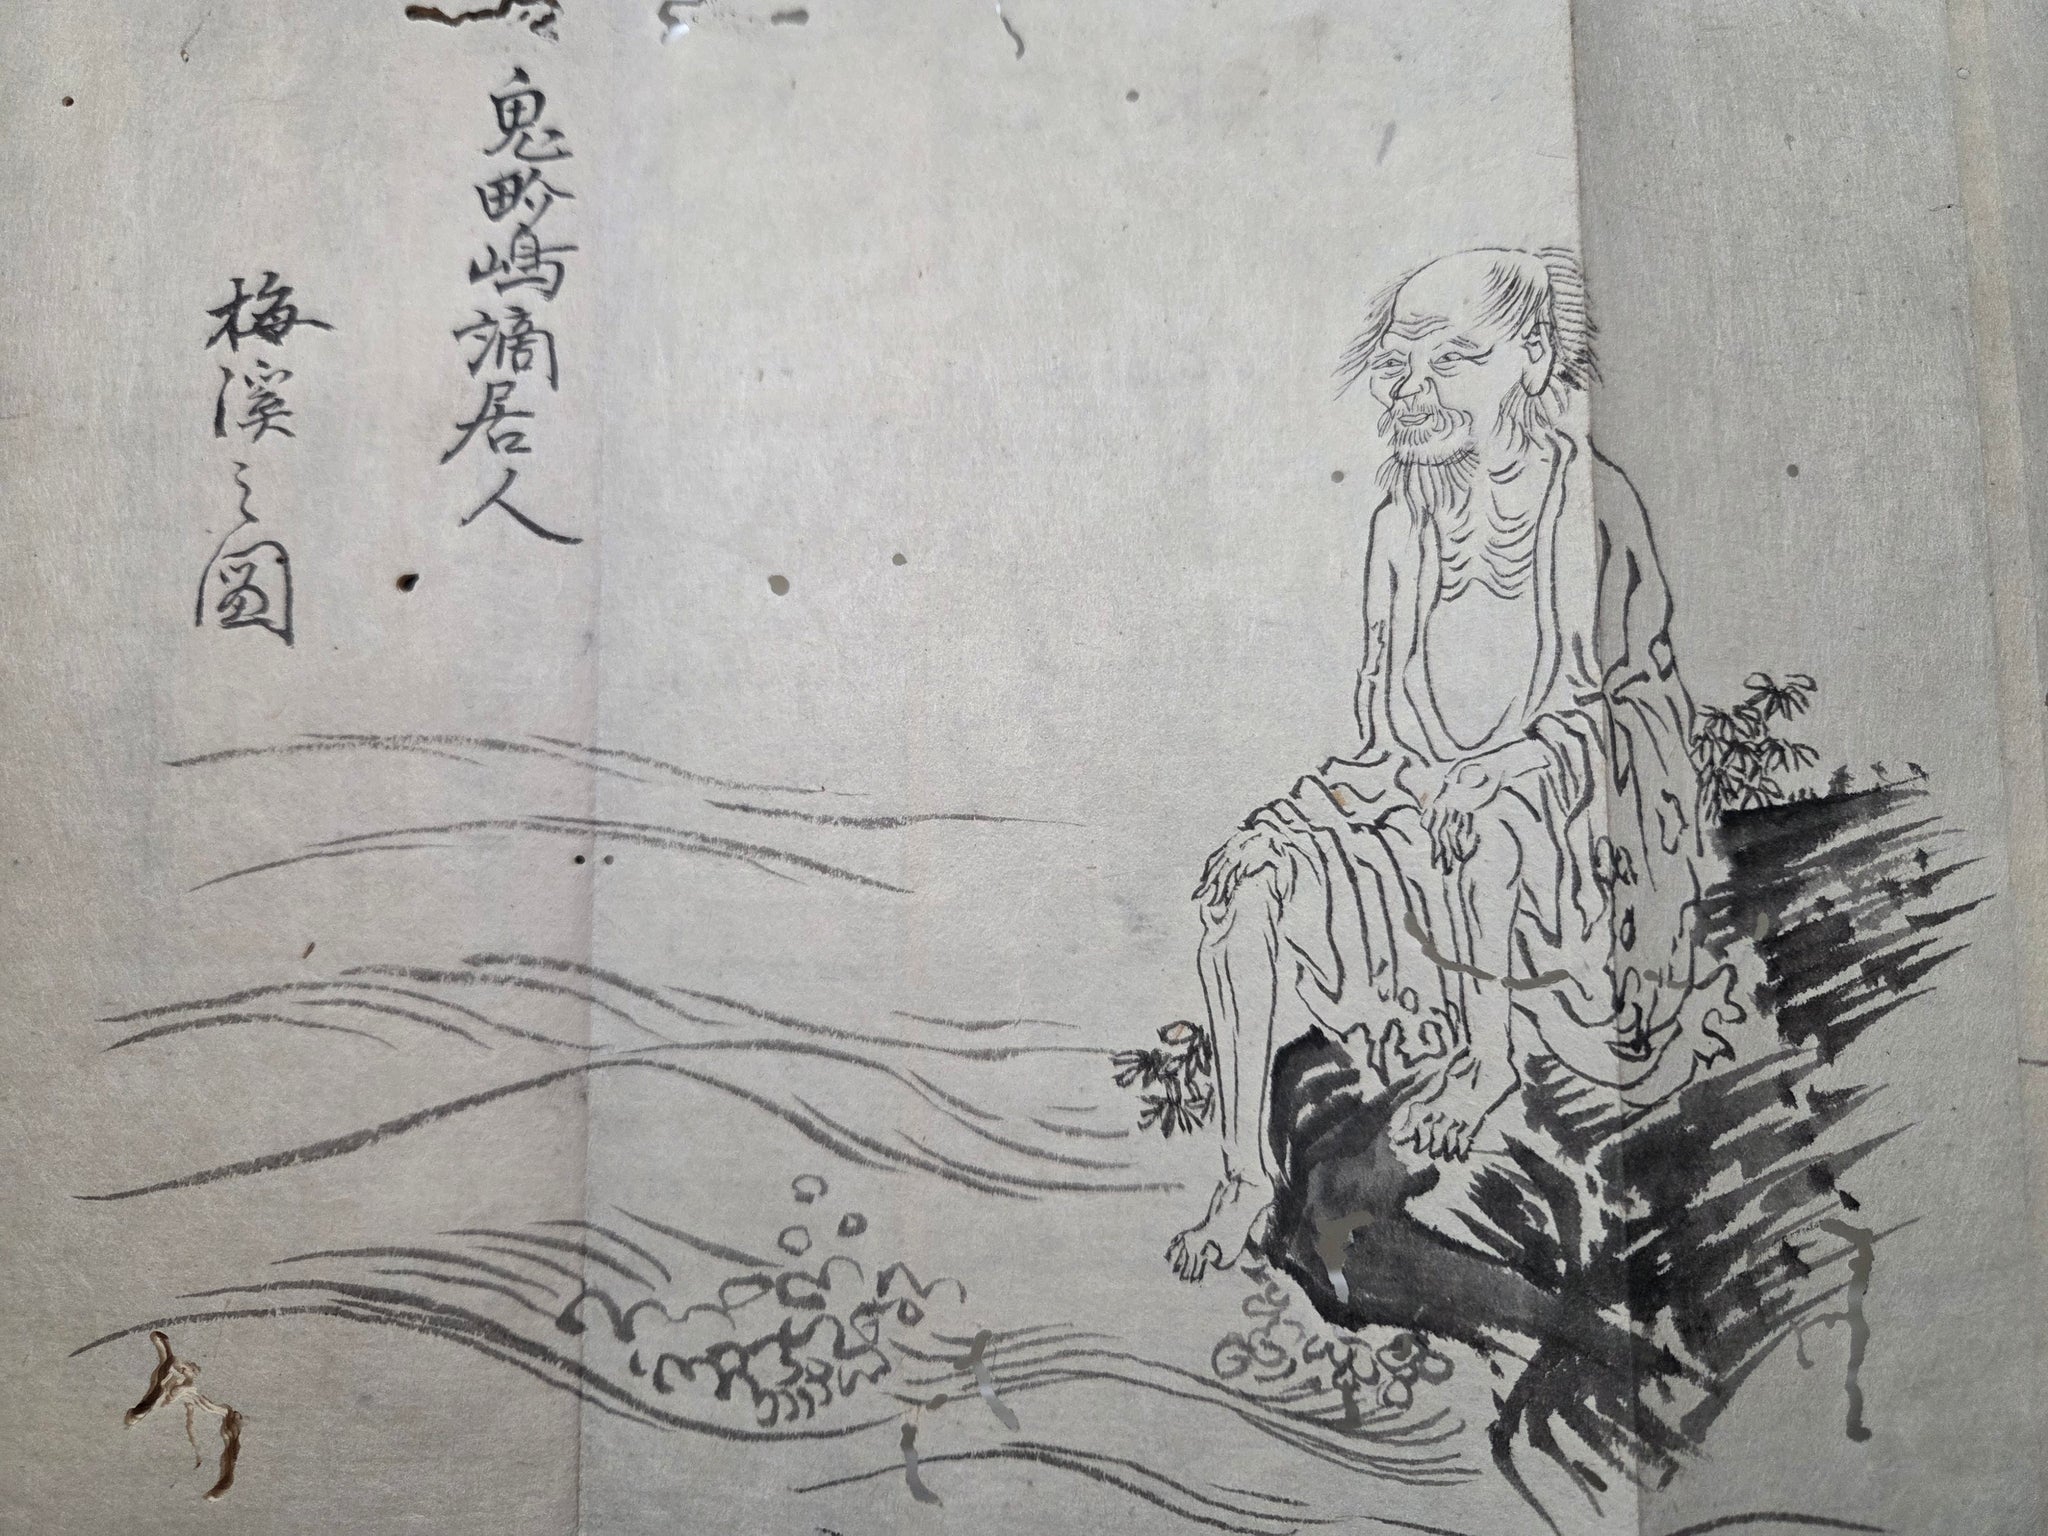 鬼畍嶋謫居人
梅溪之圖